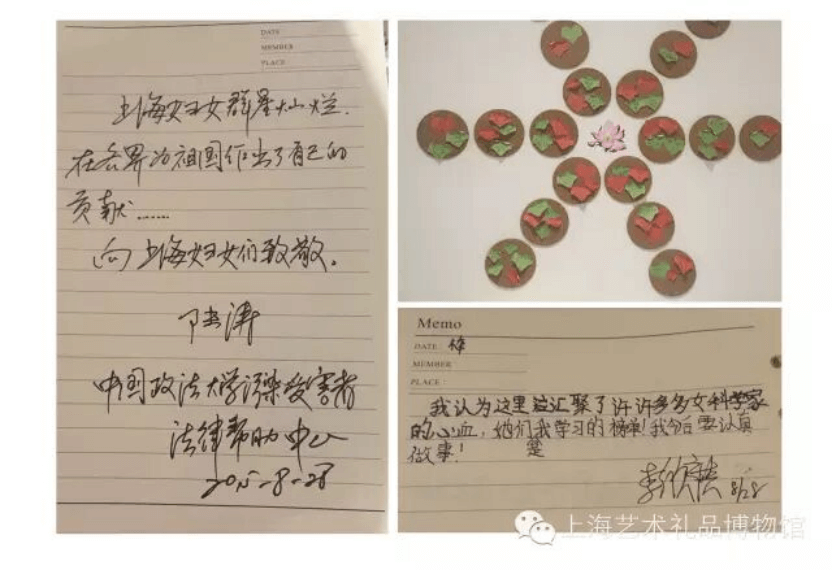 DATE
MEMBER
PLACE
上海妇女群星灿烂.
在各界为祖国作出了自己的
贡献……
向上海妇女们致敬。
中国政法大学污染受害者
法律帮助中心
2015-8-28
Memo
DATE:
MEMBER:
PLACE:
我认为这里汇聚了许许多多女科学家
的心血，她们是我学习的榜样!我今后要认真
做事!
8/28
上海艺术礼品博物馆